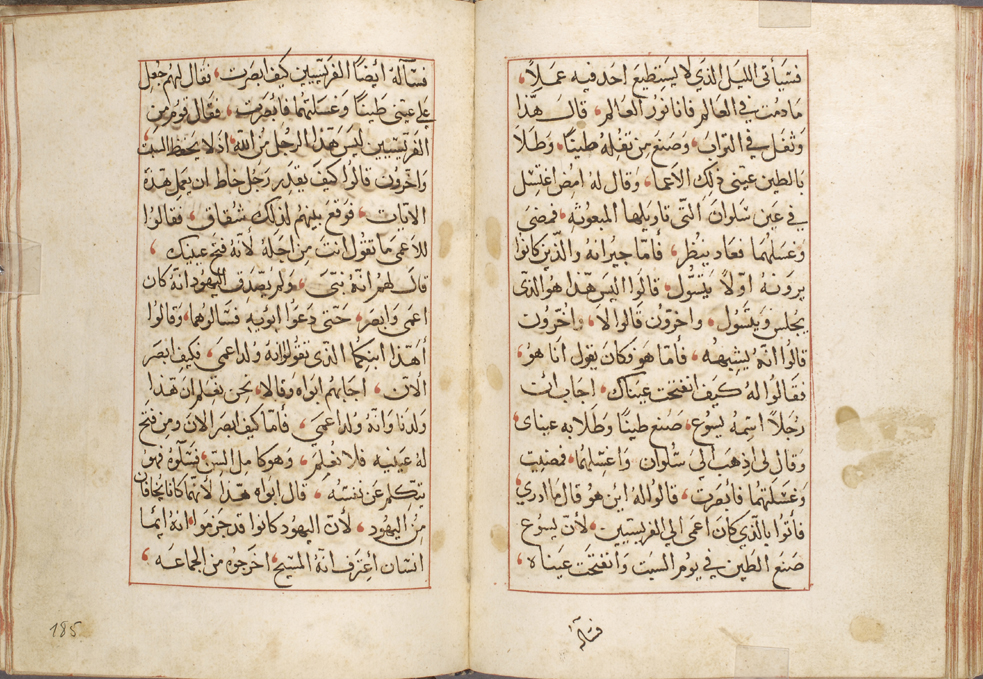 فسيأتي الليل الذي لا يستطيع احد فيه عملاً،
ما دمت في العالم فانا نور العالم، قال هذا
وتفل في التراب، وصنع من تفله طينًا، وطلا
بالطين عيني ذلك الاعما، وقال له امض اغتسل
في عين سلوان التي تاويلها المبعوثه، فمضى
وغسلهما فعاد ينظر، فأمّا جيرانه والذين كانوا
يرونه اولاً يتسول، قالوا اليس هذا هو الذي
يجلس ويتسول، واخرون قالوا لا، واخرون
قالوا انه يشبهه، فأما هو فكان يقول انا هو،
فقالوا له كيف انفتحت عيناك، اجاب انّ
رجلاً اسمه يسوع، صنع طينًا وطلا به عيناى
وقال لى اذهب الى سلوان واغسلهما، فمضيت
وغسلتهما فابصرت، قالوا له اين هو قال ما ادري،
فأتوا بالذي كان اعمى الى الفريسيين، لأن يسوع
صنع الطين في يوم السبت وانفتحت عيناه،
فسآله
فسآله ايضًا الفريسيين كيف ابصرت، فقال لهم جعل
على عيني طينًا وغسلتهما فابصرت، فقال قوم من
الفريسيين ليس هذا الرجل من الله، اذ لا يحفظ السبت
واخرون قالوا كيف يقدر رجل خاط ان يعمل هذه
الايات، فوقع بينهم لذلك شقاق، فقالوا
للاعمى ما تقول انت من اجله لأنه فتح عينيك،
قال لهم انه نبي، ولم يصدق اليهود انه كان
اعمى وابصر، حتى دعوا ابويه فسألوهما، وقالوا
أهذا ابنكما الذي تقولو انه ولد اعمى، فكيف ابصر
الان، اجابهم ابواه وقالا، نحن نعلم ان هذا
ولدنا وانه ولد اعمى، فأما كيف ابصر الان ومن فتح
له عينيه فلا نعلم، وهو كامل السن فسلوه فهو
يتكلم عن نفسه، قال ابواه هذا لأنهما كانا يخافان
من اليهود، لأن اليهود كانوا قد جزموا، انه ايما
انسان اعترف انه المسيح، اخرجوه من الجماعه،
185